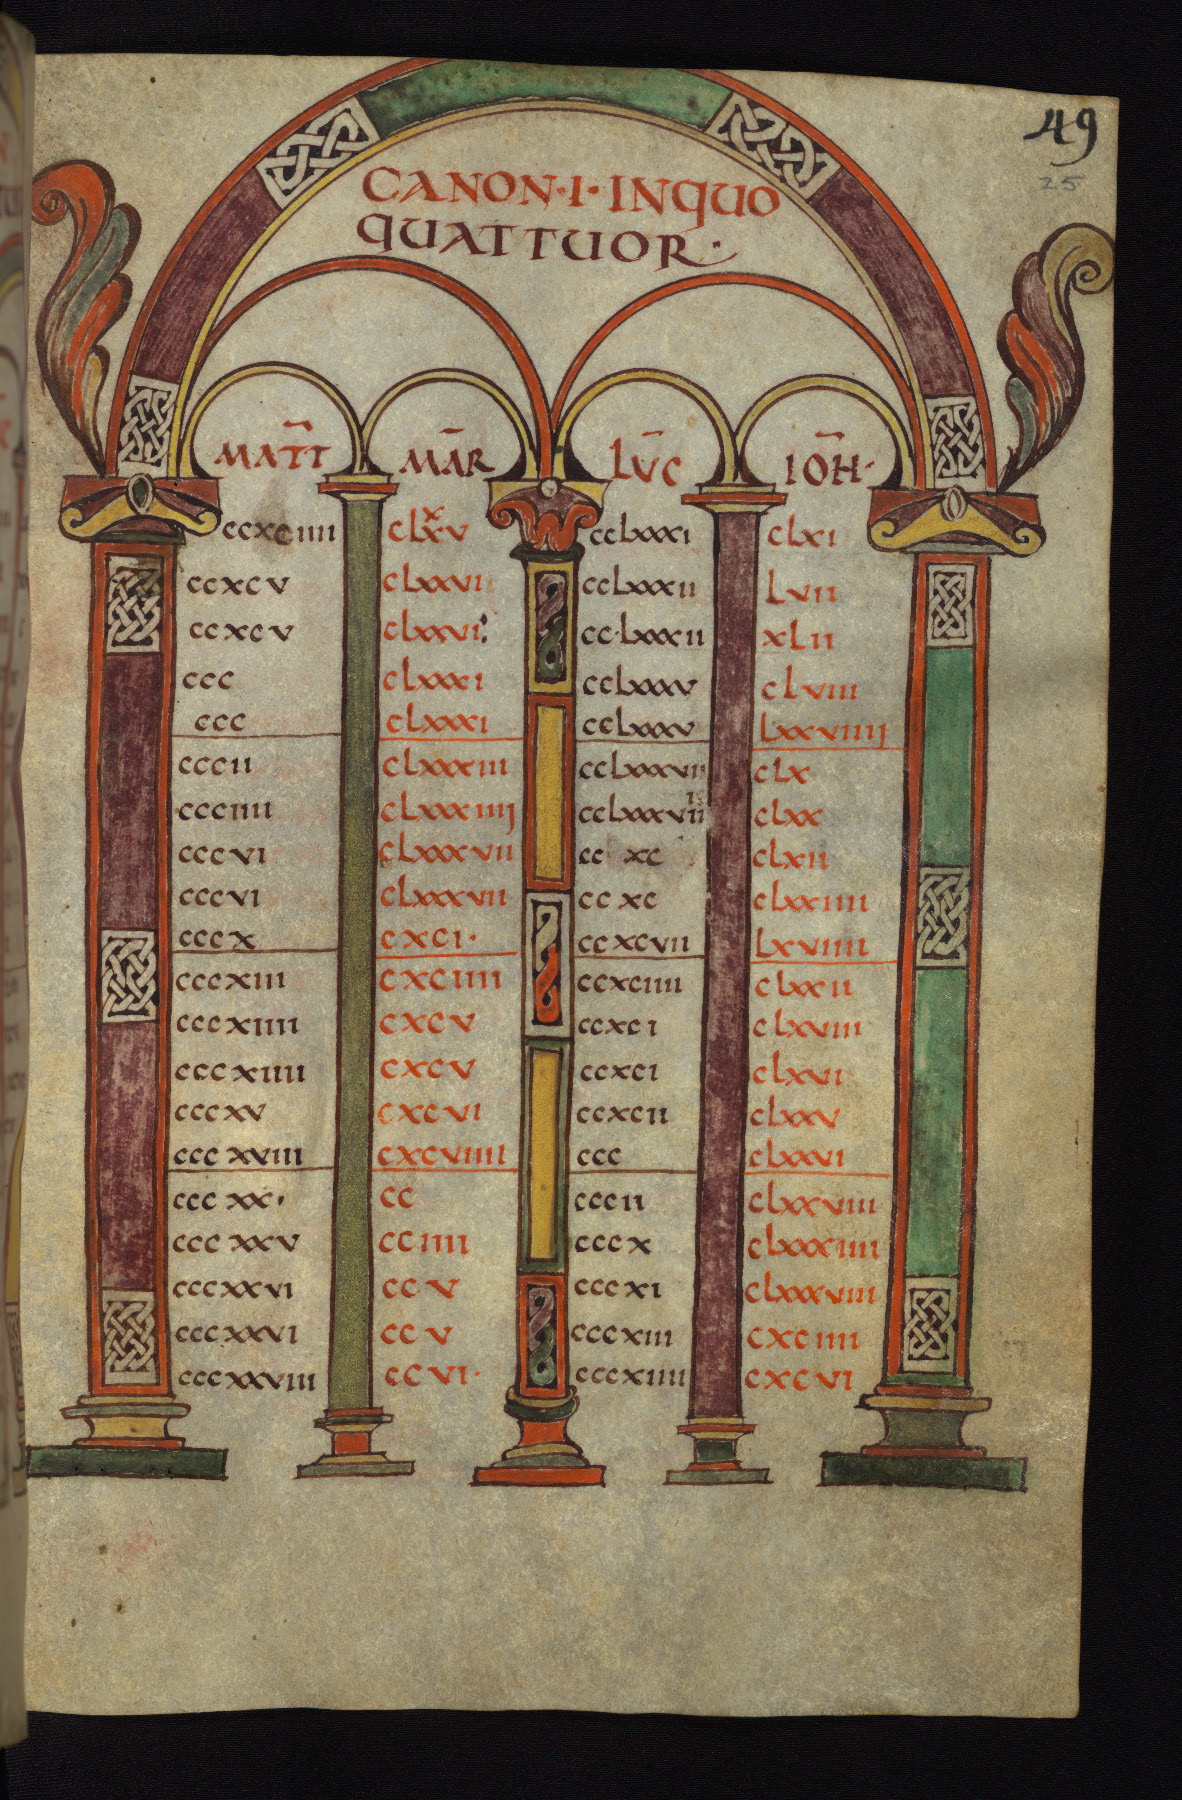 49
25
CANON·I· INQUO
QUATTUOR·
MATT MAR LUC IOH·
ccxciiii clxxv cclxxxi clxi
ccxcv clxxvi cclxxxii lvii
ccxcv clxxvi cc·lxxxii xlii
ccc clxxxi cclxxxv clviii
ccc clxxxi cclxxxv lxxviiii
cccii clxxxiii cclxxxvii clx
ccciiii clxxxiiii cclxxxvii clxx
cccvi clxxxvii cc xc clxii
cccvi clxxxvii ccxc clxxiiii
cccx cxci· ccxcvii lxviiii
cccxiii cxciiii ccxciiii clxxii
cccxiiii cxcv ccxci clxviii
cccxiiii cxcv ccxci clxvi
cccxv cxcvi ccxcii clxxv
cccxviii cxcviiii ccc clxxvi
cccxx· cc cccii clxxviiii
cccxxv cciiii cccx clxxxiiii
cccxxvi ccv cccxi clxxxviii
cccxxvi ccv cccxiii cxciiii
cccxxviii ccvi· cccxiiii cxcvi